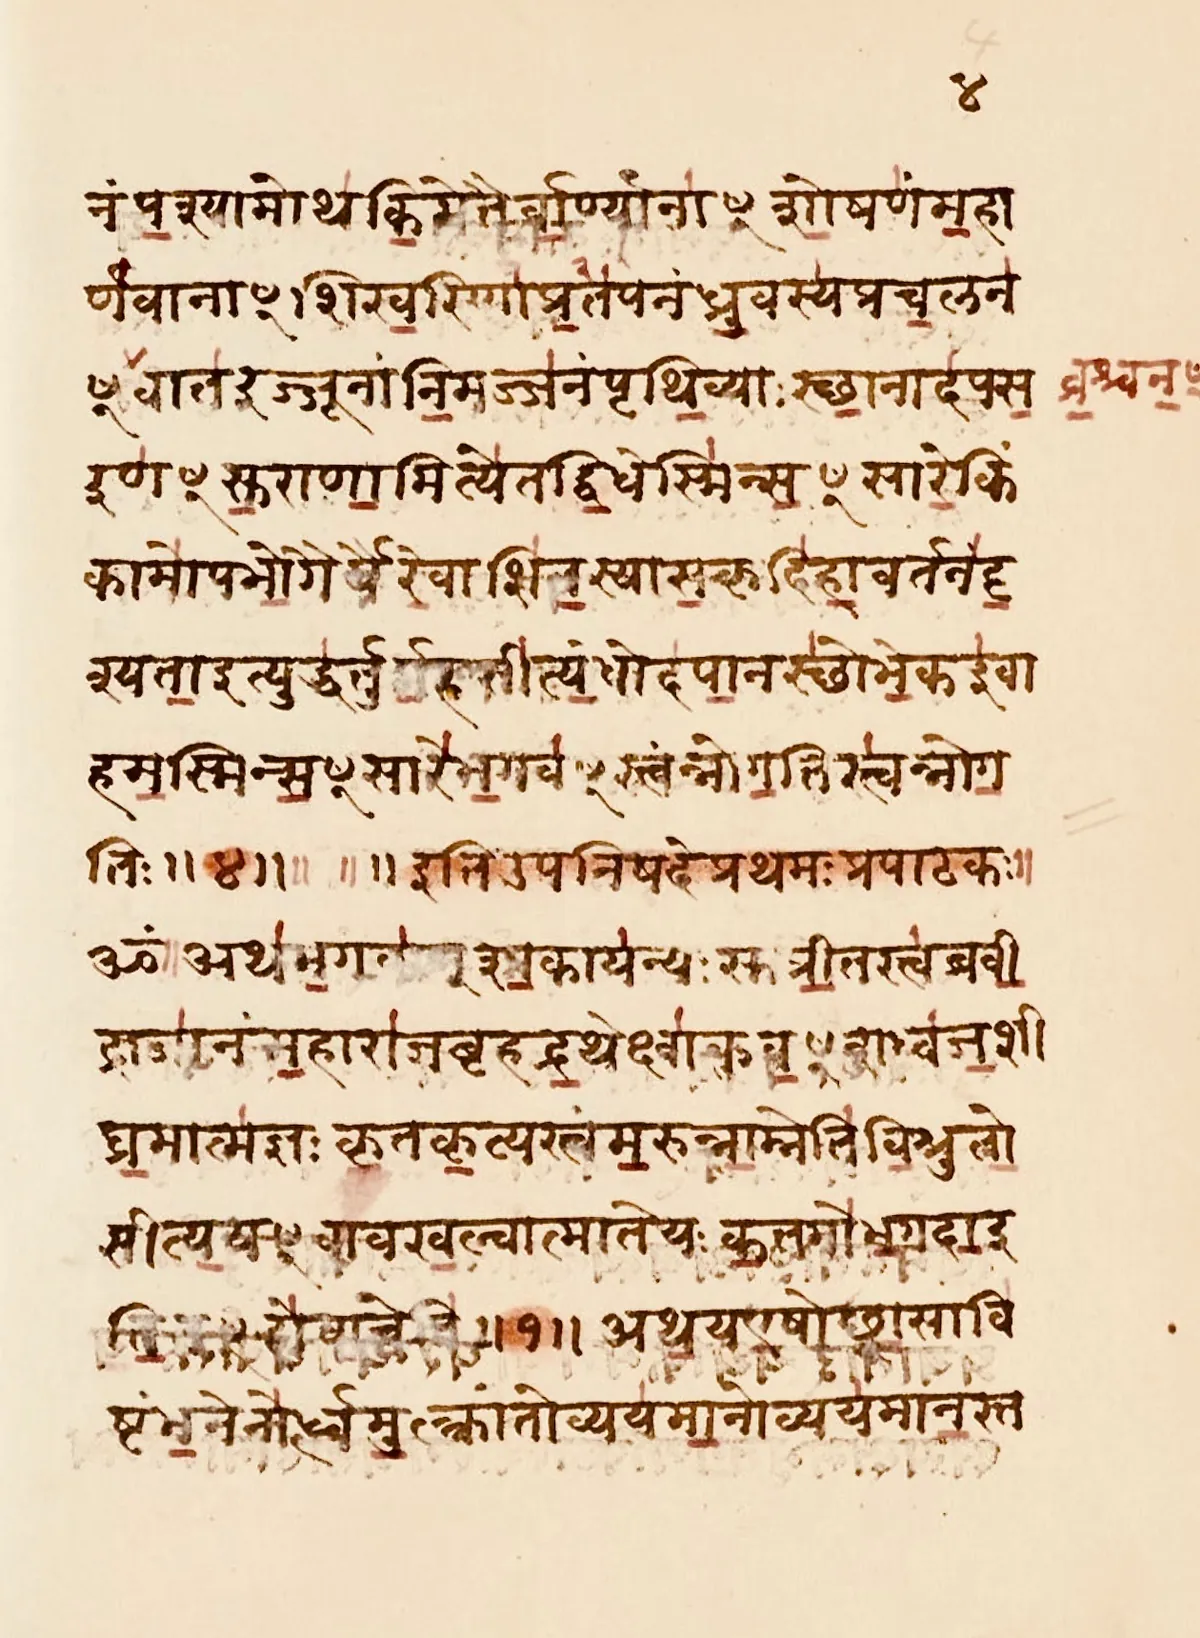 ४
नंपश्यामोथकिमेतैर्वाण्यानाꣳ शोषणंमहा
र्णवानाꣳ।शिखरिणांप्रतपनंध्रुवस्यप्रचलनं
ꣳवातरज्जूनांनिमज्जनंपृथिव्याःस्छानादपस व्रश्चनꣳ
रणꣳसुराणामित्येतद्विधेस्मिन्सꣳसारेकिं
कामोपभोगैर्यैरेवाशितस्यासकृदिहावर्तनंदृ
श्यताइत्युद्धर्तुमर्हसीत्यंधोदपानस्छोभेकइवा
हमस्मिन्सꣳसारेभगवꣳस्त्वंन्नोगतिस्त्वन्नोग
तिः॥४॥ ॥ ॥इतिउपनिषदेप्रथमःप्रपाठकः॥
ॐ अथभगवान् शाकायन्यःसुप्रीतस्त्वब्रवी
द्राजानंमहाराजबृहद्रथेक्ष्वाकुवꣳशध्वजशी
घ्रमात्मज्ञःकृतकृत्यस्त्वंमरुन्नाम्नेतिविश्रुतो
सीत्ययꣳवावखल्वात्मातेयःकतमोभगवइ
॥१॥अथयएषोछ्वासावि
ष्टंभनेनोर्ध्वमुत्क्रांतोव्ययमानोव्ययमानस्त